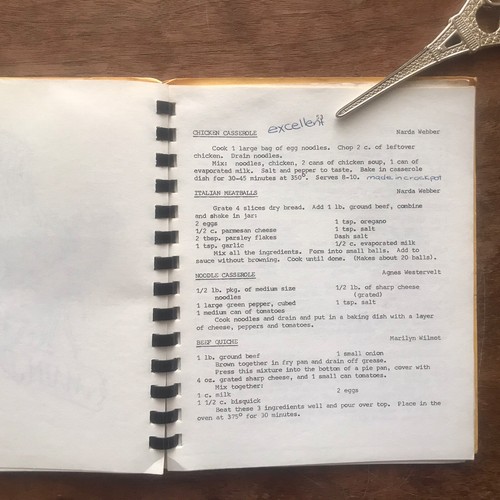 CHICKEN CASSEROLE excellent Narda Webber
Cook 1 large bag of egg noodles. Chop 2 c. of leftover
chicken. Drain noodles.
Mix: noodles, chicken, 2 cans of chicken soup, 1 can of
evaporated milk. Salt and pepper to taste. Bake in casserole
dish for 30-45 minutes at 350°. Serves 8-10. made in crockpot
ITALIAN MEATBALLS Narda Webber
Grate 4 slices dry bread. Add 1 lb. ground beef, combine
and shake in jar:
2 eggs 1 tsp. oregano
1/2 c. parmesan cheese 1 tsp. salt
2 tbsp. parsley flakes Dash salt
1 tsp. garlic 1/2 c. evaporated milk
Mix all the ingredients. Form into small balls. Add to
sauce without browning. Cook until done. (Makes about 20 balls).
NOODLE CASSEROLE Agnes Westervelt
1/2 lb. pkg. of medium size 1/2 lb. of sharp cheese
noodles (grated)
1 large green pepper, cubed 1 tsp. salt
1 medium can of tomatoes
Cook noodles and drain and put in a baking dish with a layer
of cheese, peppers and tomatoes.
BEEF QUICHE Marilyn Wilnet
1 lb. ground beef 1 small onion
Brown together in fry pan and drain off grease.
Press this mixture into the bottom of a pie pan, cover with
4 oz. grated sharp cheese, and 1 small can tomatoes.
Mix together:
1 c. milk 2 eggs
1 1/2 c. bisquick
Beat these 3 ingredients well and pour over top. Place in the
oven at 375° for 30 minutes.